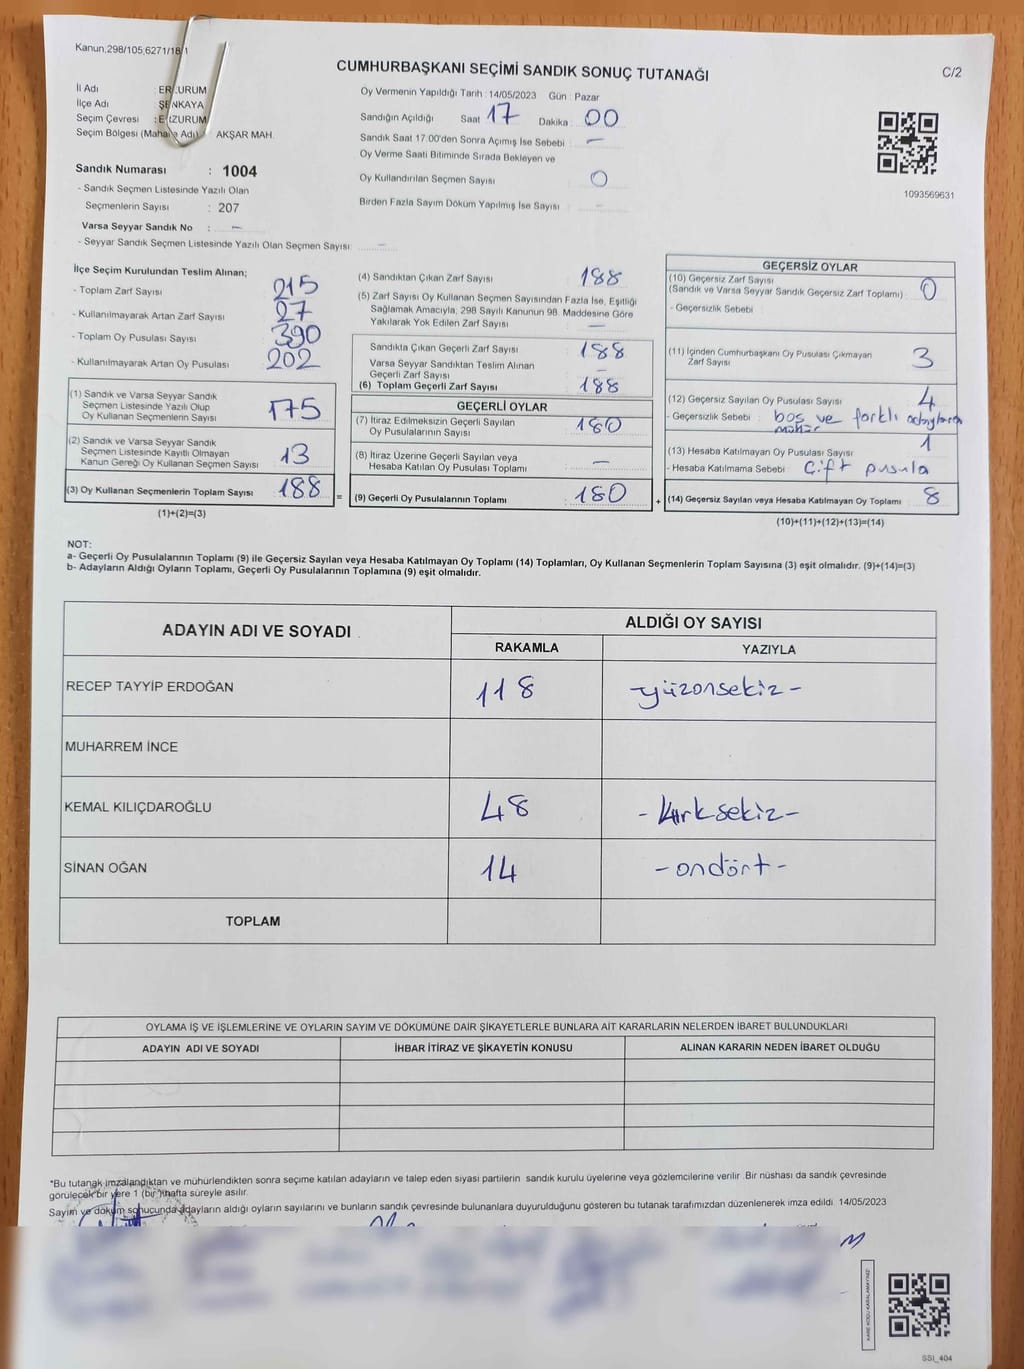 Kanun;298/105;6271/18/1
CUMHURBAŞKANI SEÇİMİ SANDIK SONUÇ TUTANAĞI
C/2
İl Adı : ERZURUM
İlçe Adı : ŞENKAYA
Seçim Çevresi : ERZURUM
Seçim Bölgesi (Mahalle Adı) : AKŞAR MAH.
Oy Vermenin Yapıldığı Tarih : 14/05/2023 Gün : Pazar
Sandığın Açıldığı Saat : 17 Dakika : 00
Sandık Saat 17.00'den Sonra Açımış İse Sebebi : –
Oy Verme Saati Bitiminde Sırada Bekleyen ve
Oy Kullandırılan Seçmen Sayısı 0
Birden Fazla Sayım Döküm Yapılmış İse Sayısı : –
1093569631
Sandık Numarası : 1004
- Sandık Seçmen Listesinde Yazılı Olan
Seçmenlerin Sayısı : 207
Varsa Seyyar Sandık No : –
- Seyyar Sandık Seçmen Listesinde Yazılı Olan Seçmen Sayısı: –
İlçe Seçim Kurulundan Teslim Alınan;
- Toplam Zarf Sayısı 215
- Kullanılmayarak Artan Zarf Sayısı : 27
- Toplam Oy Pusulası Sayısı : 390
- Kullanılmayarak Artan Oy Pusulası : 202
(1) Sandık ve Varsa Seyyar Sandık
Seçmen Listesinde Yazılı Olup
Oy Kullanan Seçmenlerin Sayısı : 175
(2) Sandık ve Varsa Seyyar Sandık
Seçmen Listesinde Kayıtlı Olmayan
Kanun Gereği Oy Kullanan Seçmen Sayısı : 13
(3) Oy Kullanan Seçmenlerin Toplam Sayısı : 188 =
(1)+(2)=(3)
(4) Sandıktan Çıkan Zarf Sayısı 188
(5) Zarf Sayısı Oy Kullanan Seçmen Sayısından Fazla İse, Eşitliği
Sağlamak Amacıyla; 298 Sayılı Kanunun 98. Maddesine Göre
Yakılarak Yok Edilen Zarf Sayısı : –
Sandıkta Çıkan Geçerli Zarf Sayısı : 188
Varsa Seyyar Sandıktan Teslim Alınan
Geçerli Zarf Sayısı : –
(6) Toplam Geçerli Zarf Sayısı : 188
GEÇERLİ OYLAR
(7) İtiraz Edilmeksizin Geçerli Sayılan
Oy Pusulalarının Sayısı : 180
(8) İtiraz Üzerine Geçerli Sayılan veya
Hesaba Katılan Oy Pusulası Toplamı : –
(9) Geçerli Oy Pusulalarının Toplamı : 180 +
GEÇERSİZ OYLAR
(10) Geçersiz Zarf Sayısı
(Sandık ve Varsa Seyyar Sandık Geçersiz Zarf Toplamı) : 0
- Geçersizlik Sebebi :
(11) İçinden Cumhurbaşkanı Oy Pusulası Çıkmayan
Zarf Sayısı : 3
(12) Geçersiz Sayılan Oy Pusulası Sayısı : 4
- Geçersizlik Sebebi : boş ve farklı adaylara
mühür
(13) Hesaba Katılmayan Oy Pusulası Sayısı : 1
- Hesaba Katılmama Sebebi : Çift pusula
(14) Geçersiz Sayılan veya Hesaba Katılmayan Oy Toplamı : 8
(10)+(11)+(12)+(13)=(14)
NOT:
a- Geçerli Oy Pusulalarının Toplamı (9) ile Geçersiz Sayılan veya Hesaba Katılmayan Oy Toplamı (14) Toplamları, Oy Kullanan Seçmenlerin Toplam Sayısına (3) eşit olmalıdır. (9)+(14)=(3)
b- Adayların Aldığı Oyların Toplamı, Geçerli Oy Pusulalarının Toplamına (9) eşit olmalıdır.
ADAYIN ADI VE SOYADI
ALDIĞI OY SAYISI
RAKAMLA YAZIYLA
RECEP TAYYİP ERDOĞAN 118 –yüzonsekiz–
MUHARREM İNCE
KEMAL KILIÇDAROĞLU 48 –kırksekiz–
SİNAN OĞAN 14 –ondört–
TOPLAM
OYLAMA İŞ VE İŞLEMLERİNE VE OYLARIN SAYIM VE DÖKÜMÜNE DAİR ŞİKAYETLERLE BUNLARA AİT KARARLARIN NELERDEN İBARET BULUNDUKLARI
ADAYIN ADI VE SOYADI İHBAR İTİRAZ VE ŞİKAYETİN KONUSU ALINAN KARARIN NEDEN İBARET OLDUĞU
*Bu tutanak imzalandıktan ve mühürlendikten sonra seçime katılan adayların ve talep eden siyasi partilerin sandık kurulu üyelerine veya gözlemcilerine verilir. Bir nüshası da sandık çevresinde
görülecek bir yere 1 (bir) hafta süreyle asılır.
Sayım ve döküm sonucunda adayların aldığı oyların sayılarını ve bunların sandık çevresinde bulunanlara duyurulduğunu gösteren bu tutanak tarafımızdan düzenlenerek imza edildi. 14/05/2023
KARE KODU KARALAMAYINIZ!
SSI_404